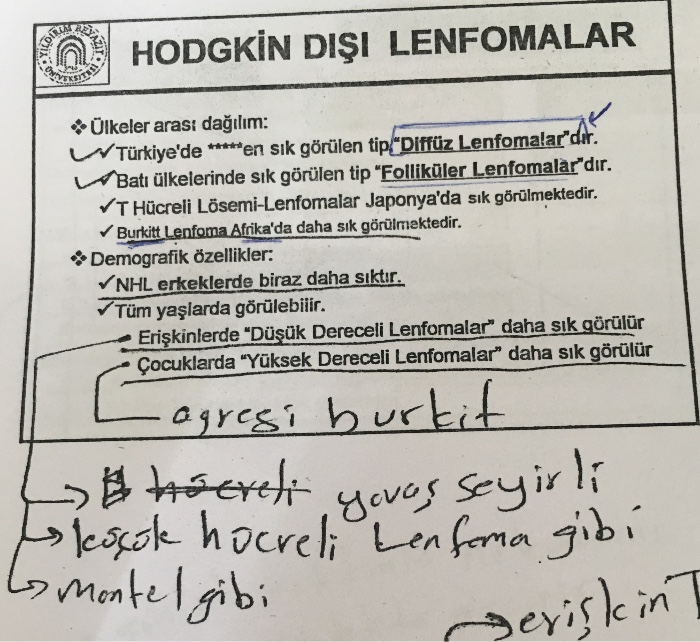 YILDIRIM BEYAZIT ÜNİVERSİTESİ
HODGKİN DIŞI LENFOMALAR
❖ Ülkeler arası dağılım:
✓Türkiye'de *****en sık görülen tip "Diffüz Lenfomalar"dır.
✓Batı ülkelerinde sık görülen tip "Folliküler Lenfomalar"dır.
✓T Hücreli Lösemi-Lenfomalar Japonya'da sık görülmektedir.
✓Burkitt Lenfoma Afrika'da daha sık görülmektedir.
❖ Demografik özellikler:
✓NHL erkeklerde biraz daha sıktır.
✓Tüm yaşlarda görülebilir.
• Erişkinlerde "Düşük Dereceli Lenfomalar" daha sık görülür
• Çocuklarda "Yüksek Dereceli Lenfomalar" daha sık görülür
agresi burkit
→ B hücreli yavaş seyirli
→ küçük hücreli Lenfoma gibi
→ mantel gibi
→ erişkin T